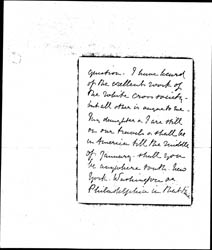 question. I have heard
of the excellent work of
the White Cross Society –
but all other is unknown to me.
My daughter & I are still
on our travels & shall be
in America till the middle
of January – shall you
be anywhere south New
York. Washington or
Philadelphia in that